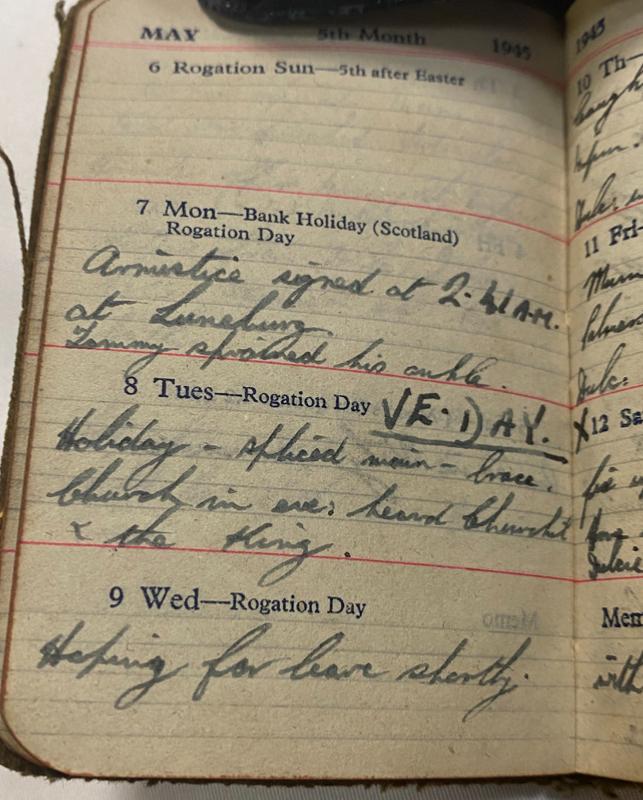 MAY 5th Month 1945
6 Rogation Sun—5th after Easter
7 Mon—Bank Holiday (Scotland)
Rogation Day
Armistice signed at 2.41 A.M.
at Luneburg.
Tommy sprained his ankle.
8 Tues—Rogation Day VE. DAY.
Holiday - spliced main-brace.
Church in eve: heard Churchill
& the King.
9 Wed—Rogation Day
Hoping for leave shortly.
Memo
1945
10 Th—
11 Fri-
X12 Sa
fix
Mem
with